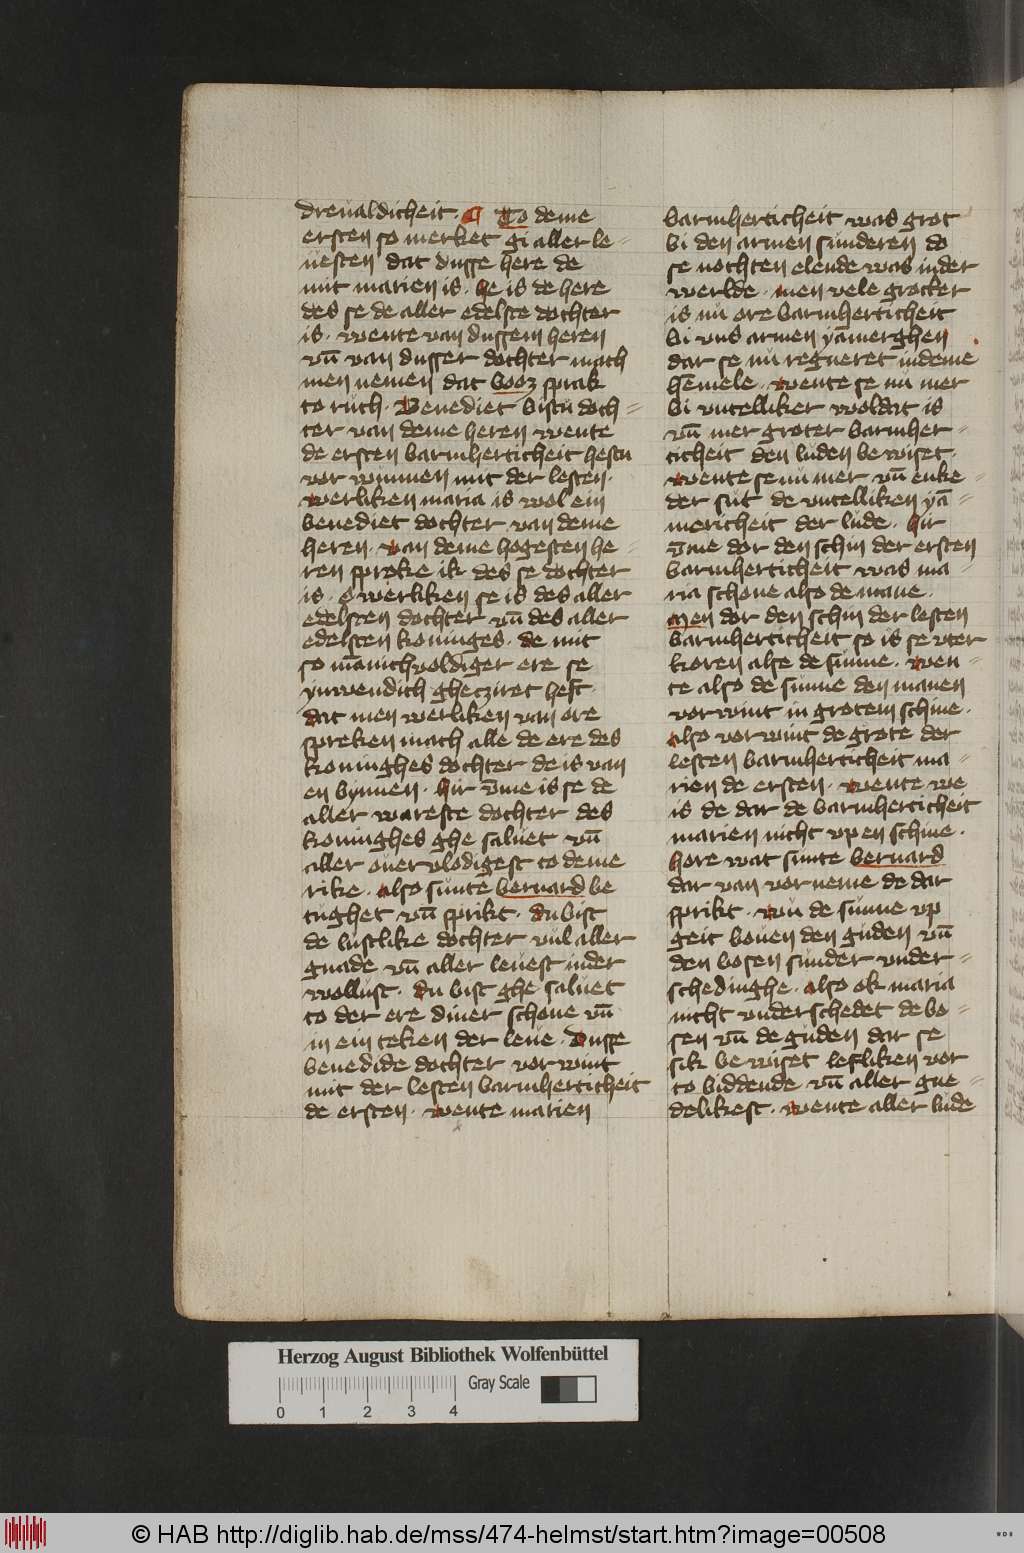 dreualdicheit. ¶ To deme
ersten so merket gi aller le=
uesten dat dusse here de
mit marien is. he is de here
des se de aller edelste dochter
is. wente van dussem heren
vn̄ van dusser dochter mach
men nemen dat booz sprak
to ruth. Benediet bistu doch=
ter van deme heren wente
de ersten barmherticheit hestu
vor wunnen mit der lesten.
werliken maria is wol ein
benediet dochter van deme
heren. van deme hogesten he=
ren spreke ik des se dochter
is. o werliken se is des aller
edelsten dochter vn̄ des aller
edelsten koninges. de mit
so mānichvoldiger ere se
ynwendich ghecziret heft.
dat men werliken van ore
spreken mach alle de ere des
koninghes dochter de is van
en bynnen. hir v̄me is se de
aller wareste dochter des
koninghes ghe saluet vn̄
aller ouer vlodigest to deme
rike. also sunte bernard be
tughet vn̄ sprikt. du bist
de lustlike dochter vul aller
gnade vn̄ aller leuest in der
wollust. du bist ghe saluet
to der ere diner schone vn̄
in ein teken der leue. Dusse
benedide dochter vor wint
mit der lesten barmherticheit
de ersten. wente marien
barmherticheit was grot
bi den armen sunderen do
se nochten elende was in der
werlde. men vele grocker
is nu ore barmherticheit
bi vns armen yamerghen
dar se nu regneret in deme
hēmele. wente se nu mer
bi vntelliker woldat is
vn̄ mer groter barmher=
ticheit den luden be wiset.
wente se nu mer vn̄ enke=
der sut de vntelliken yā=
mericheit der lude. hir
v̄me dor den schin der ersten
barmherticheit was ma=
ria schone also de mane.
men dor den schin der lesten
barmherticheit so is se vter
koren alse de sunne. wen=
te also de sunne den manen
vor wint in grotem schine.
also vor wint de grote der
lesten barmherticheit ma=
rien de ersten. wente we
is de dar de barmherticheit
marien nicht vp en schine.
hore wat sunte bernard
dar van vor neme de dar
sprikt. wu de sunne vp
geit bouen den guden vn̄
den bosen sunder vnder=
schedinghe. also ok maria
nicht vnderschedet de bo=
sen vn̄ de guden dar se
sik be wiset lefliken vor
to biddende vn̄ aller gne=
delikest. wente aller lude
Herzog August Bibliothek Wolfenbüttel
Gray Scale
0 1 2 3 4
© HAB http://diglib.hab.de/mss/474-helmst/start.htm?image=00508